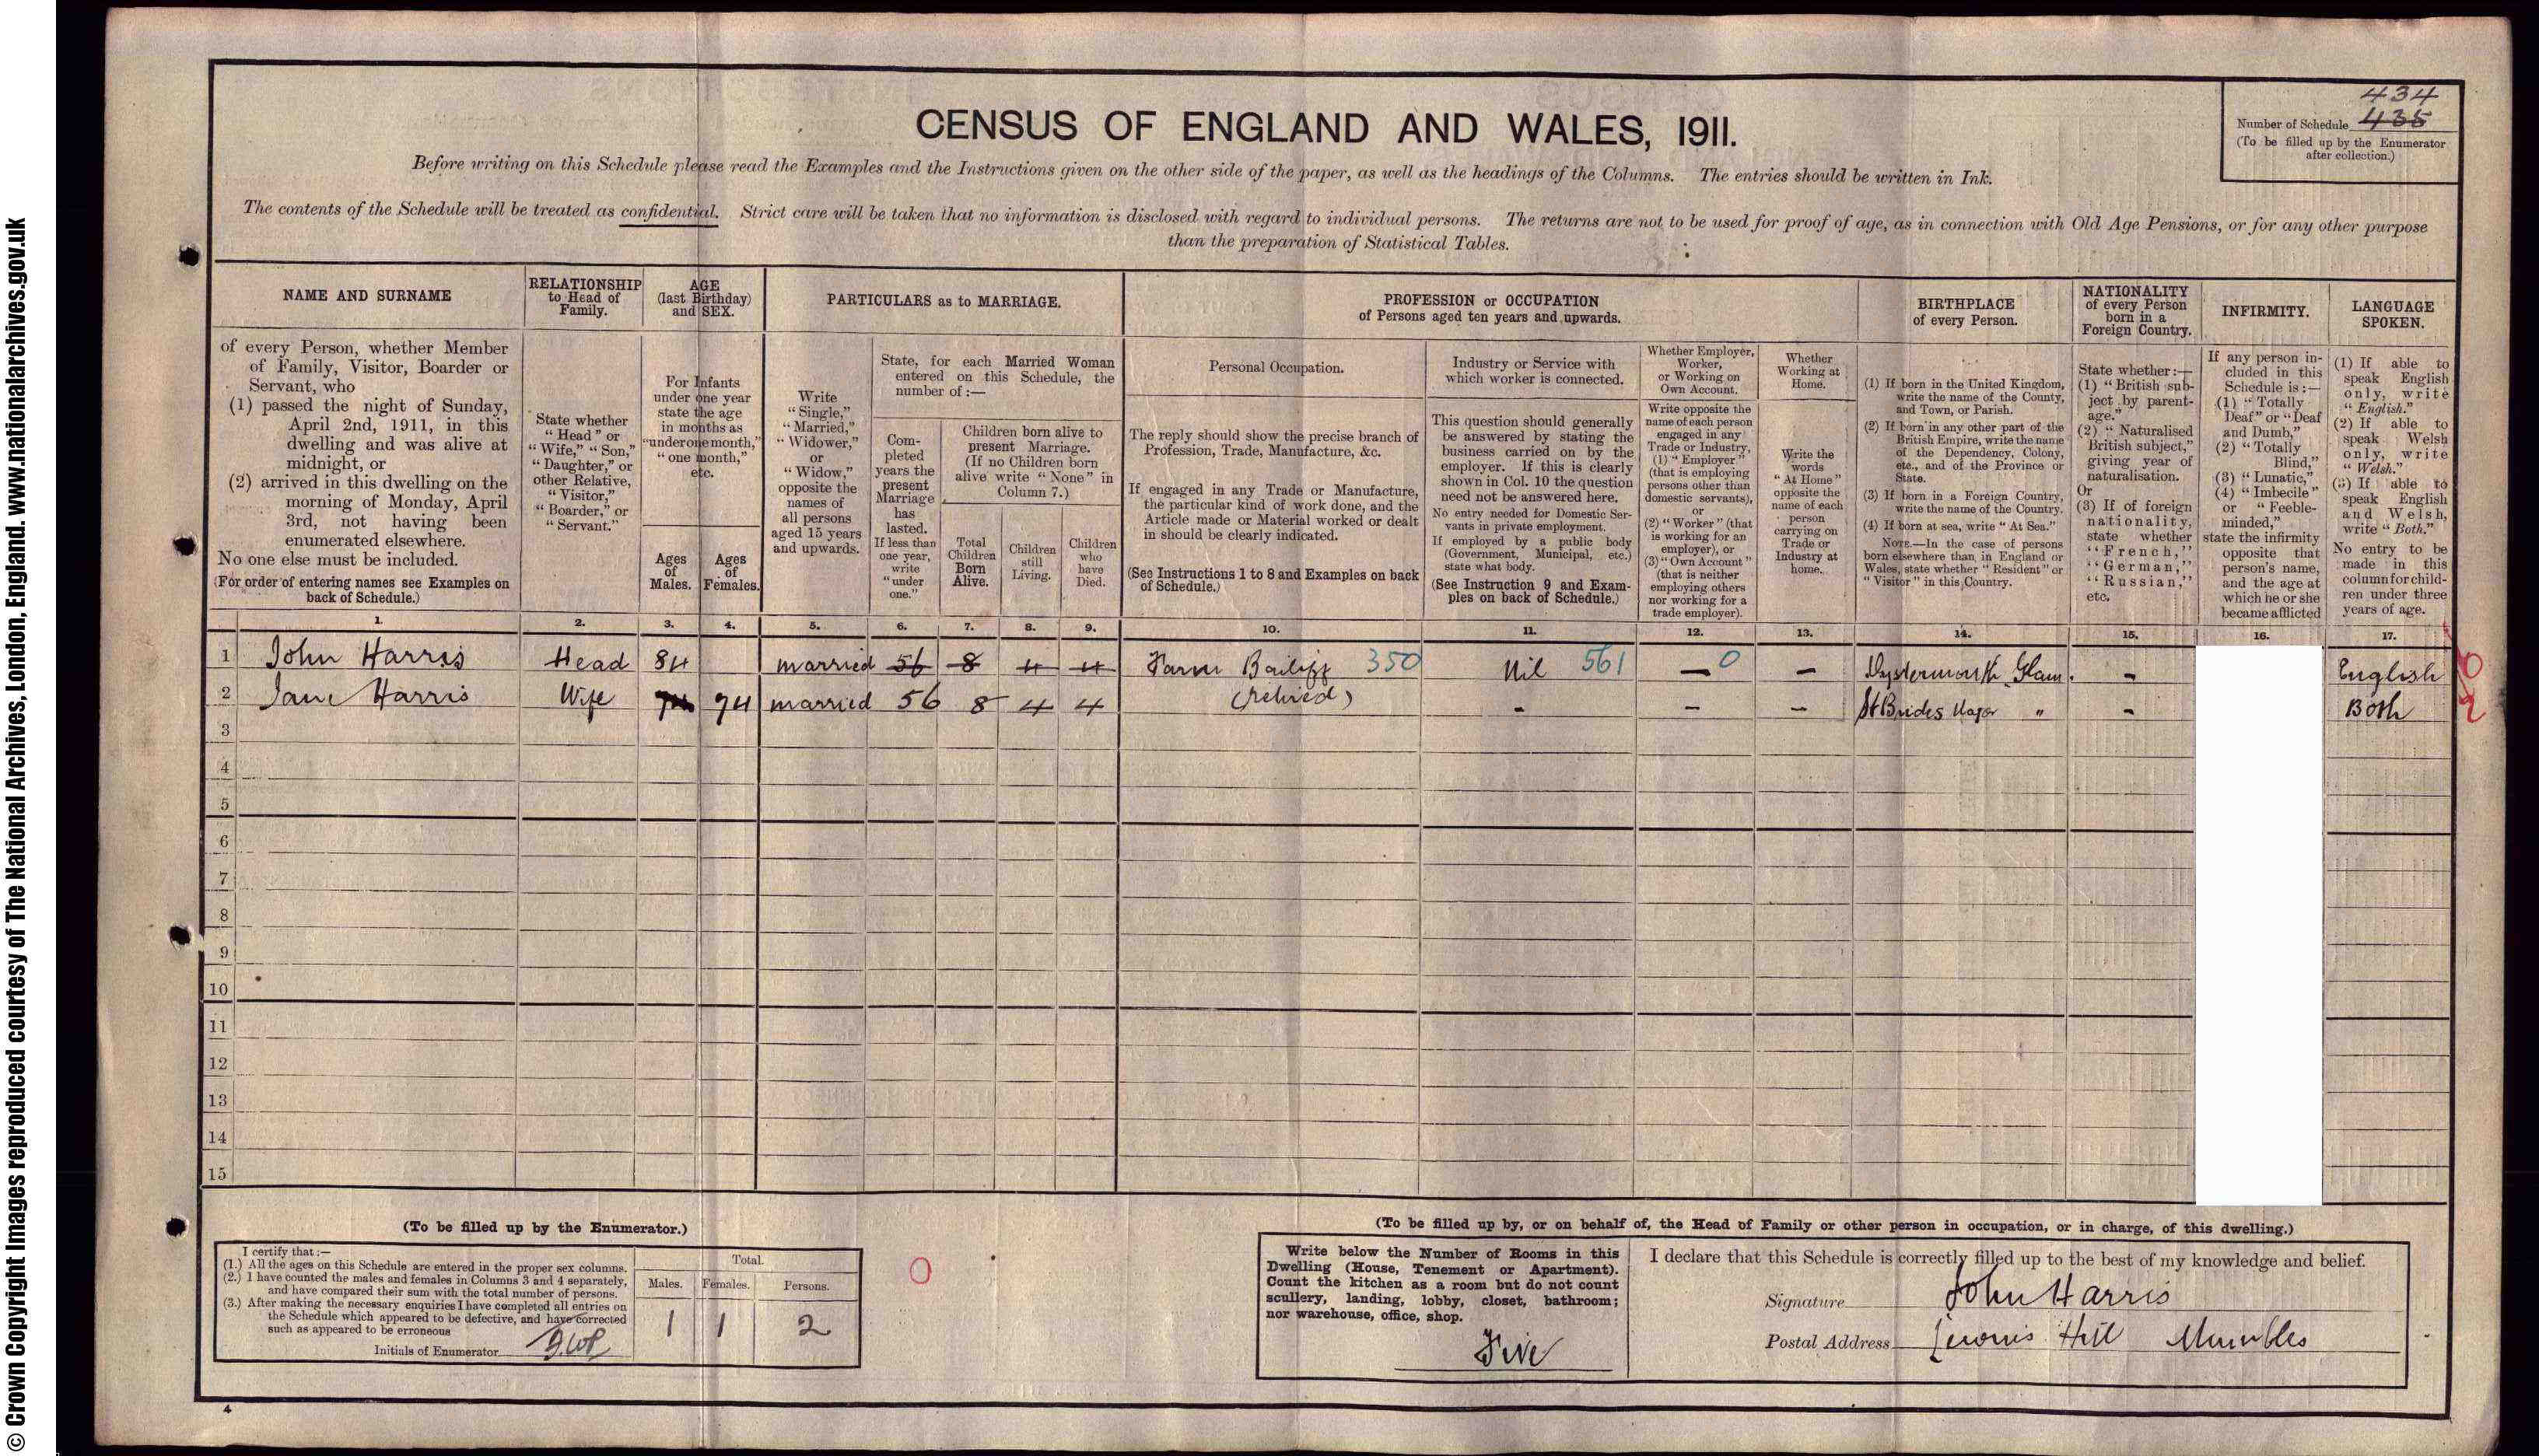 © Crown Copyright Images reproduced courtesy of The National Archives, London, England. www.nationalarchives.gov.uk
CENSUS OF ENGLAND AND WALES, 1911.
434
Number of Schedule 435
(To be filled up by the Enumerator
after collection.)
Before writing on this Schedule please read the Examples and the Instructions given on the other side of the paper, as well as the headings of the Columns. The entries should be written in Ink.
The contents of the Schedule will be treated as confidential. Strict care will be taken that no information is disclosed with regard to individual persons. The returns are not to be used for proof of age, as in connection with Old Age Pensions, or for any other purpose
than the preparation of Statistical Tables.
NAME AND SURNAME
of every Person, whether Member
of Family, Visitor, Boarder or
Servant, who
(1) passed the night of Sunday,
April 2nd, 1911, in this
dwelling and was alive at
midnight, or
(2) arrived in this dwelling on the
morning of Monday, April
3rd, not having been
enumerated elsewhere.
No one else must be included.
(For order of entering names see Examples on
back of Schedule.)
RELATIONSHIP
to Head of
Family.
State whether
"Head" or
"Wife," "Son,"
"Daughter," or
other Relative,
"Visitor,"
"Boarder," or
"Servant."
AGE
(last Birthday)
and SEX.
For Infants
under one year
state the age
in months as
"under one month,"
"one month,"
etc.
Ages
of
Males.
Ages
of
Females.
PARTICULARS as to MARRIAGE.
Write
"Single,"
"Married,"
"Widower,"
or
"Widow,"
opposite the
names of
all persons
aged 15 years
and upwards.
State, for each Married Woman
entered on this Schedule, the
number of :—
Com-
pleted
years the
present
Marriage
has
lasted.
If less than
one year,
write
"under
one."
Children born alive to
present Marriage.
(If no Children born
alive write "None" in
Column 7.)
Total
Children
Born
Alive.
Children
still
Living.
Children
who
have
Died.
PROFESSION or OCCUPATION
of Persons aged ten years and upwards.
Personal Occupation.
The reply should show the precise branch of
Profession, Trade, Manufacture, &c.
If engaged in any Trade or Manufacture,
the particular kind of work done, and the
Article made or Material worked or dealt
in should be clearly indicated.
(See Instructions 1 to 8 and Examples on back
of Schedule.)
Industry or Service with
which worker is connected.
This question should generally
be answered by stating the
business carried on by the
employer. If this is clearly
shown in Col. 10 the question
need not be answered here.
No entry needed for Domestic Ser-
vants in private employment.
If employed by a public body
(Government, Municipal, etc.)
state what body.
(See Instruction 9 and Exam-
ples on back of Schedule.)
Whether Employer,
Worker,
or Working on
Own Account.
Write opposite the
name of each person
engaged in any
Trade or Industry,
(1) "Employer"
(that is employing
persons other than
domestic servants),
or
(2) "Worker" (that
is working for an
employer), or
(3) "Own Account"
(that is neither
employing others
nor working for a
trade employer).
Whether
Working at
Home.
Write the
words
"At Home"
opposite the
name of each
person
carrying on
Trade or
Industry at
home.
BIRTHPLACE
of every Person.
(1) If born in the United Kingdom,
write the name of the County,
and Town, or Parish.
(2) If born in any other part of the
British Empire, write the name
of the Dependency, Colony,
etc., and of the Province or
State.
(3) If born in a Foreign Country,
write the name of the Country.
(4) If born at sea, write "At Sea."
NOTE.—In the case of persons
born elsewhere than in England or
Wales, state whether "Resident" or
"Visitor" in this Country.
NATIONALITY
of every Person
born in a
Foreign Country.
State whether:—
(1) "British sub-
ject by parent-
age."
(2) "Naturalised
British subject,"
giving year of
naturalisation.
Or
(3) If of foreign
nationality,
state whether
"French,"
"German,"
"Russian,"
etc.
INFIRMITY.
If any person in-
cluded in this
Schedule is :—
(1) "Totally
Deaf" or "Deaf
and Dumb,"
(2) "Totally
Blind,"
(3) "Lunatic,"
(4) "Imbecile"
or "Feeble-
minded,"
state the infirmity
opposite that
person's name,
and the age at
which he or she
became afflicted
LANGUAGE
SPOKEN.
(1) If able to
speak English
only, write
"English."
(2) If able to
speak Welsh
only, write
"Welsh."
(3) If able to
speak English
and Welsh,
write "Both."
No entry to be
made in this
column for child-
ren under three
years of age.
1. 2. 3. 4. 5. 6. 7. 8. 9. 10. 11. 12. 13. 14. 15. 16. 17.
1 John Harris Head 84 married 56 8 4 4 Farm Bailiff 350 Nil 561 — 0 — Oystermouth Glam. - English 0
(retired)
2 Jane Harris Wife 74 74 married 56 8 4 4 - — — St Brides Major " - Both 2
3
4
5
6
7
8
9
10
11
12
13
14
15
(To be filled up by the Enumerator.)
I certify that :—
(1.) All the ages on this Schedule are entered in the proper sex columns.
(2.) I have counted the males and females in Columns 3 and 4 separately,
and have compared their sum with the total number of persons.
(3.) After making the necessary enquiries I have completed all entries on
the Schedule which appeared to be defective, and have corrected
such as appeared to be erroneous
Initials of Enumerator
Total.
Males. Females. Persons.
1 1 2
0
(To be filled up by, or on behalf of, the Head of Family or other person in occupation, or in charge, of this dwelling.)
Write below the Number of Rooms in this
Dwelling (House, Tenement or Apartment).
Count the kitchen as a room but do not count
scullery, landing, lobby, closet, bathroom;
nor warehouse, office, shop.
Five
I declare that this Schedule is correctly filled up to the best of my knowledge and belief.
Signature John Harris
Postal Address Hill Mumbles
4